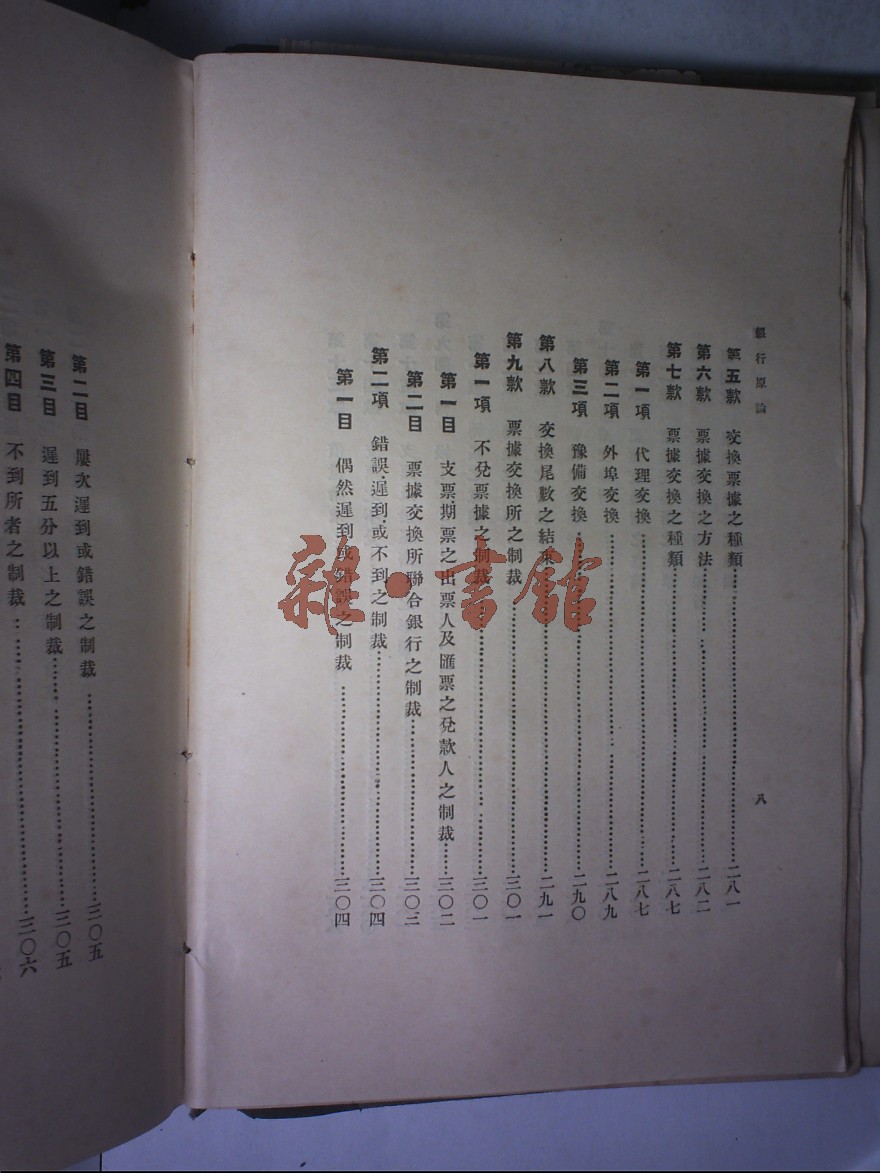 銀行原論
八
第五款 交換票據之種類……二八一
第六款 票據交換之方法……二八二
第七款 票據交換之種類……二八七
第一項 代理交換……二八七
第二項 外埠交換……二八九
第三項 豫備交換……二九〇
第八款 交換尾數之結束……二九一
第九款 票據交換所之制裁……三〇一
第一項 不兌票據之制裁……三〇一
第一目 支票.期票之出票人及匯票之兌款人之制裁……三〇二
第二目 票據交換所聯合銀行之制裁……三〇三
第二項 錯誤.遲到.或不到之制裁……三〇四
第一目 偶然遲到或錯誤之制裁……三〇四
第二目 屢次遲到或錯誤之制裁……三〇五
第三目 遲到五分以上之制裁……三〇五
第四目 不到所者之制裁……三〇六
雜·書館